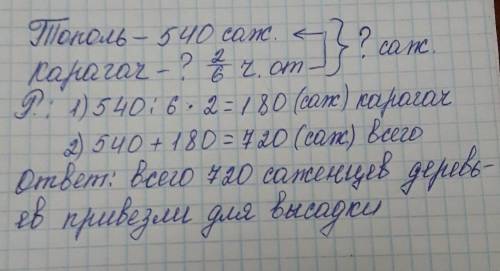 Тополь – 540 саж.
Карагач – ? 2/6 ч. от } ? саж.
Р.: 1) 540 : 6 · 2 = 180 (саж) карагач
2) 540 + 180 = 720 (саж) всего
Ответ: всего 720 саженцев деревь-
ев привезли для высадки